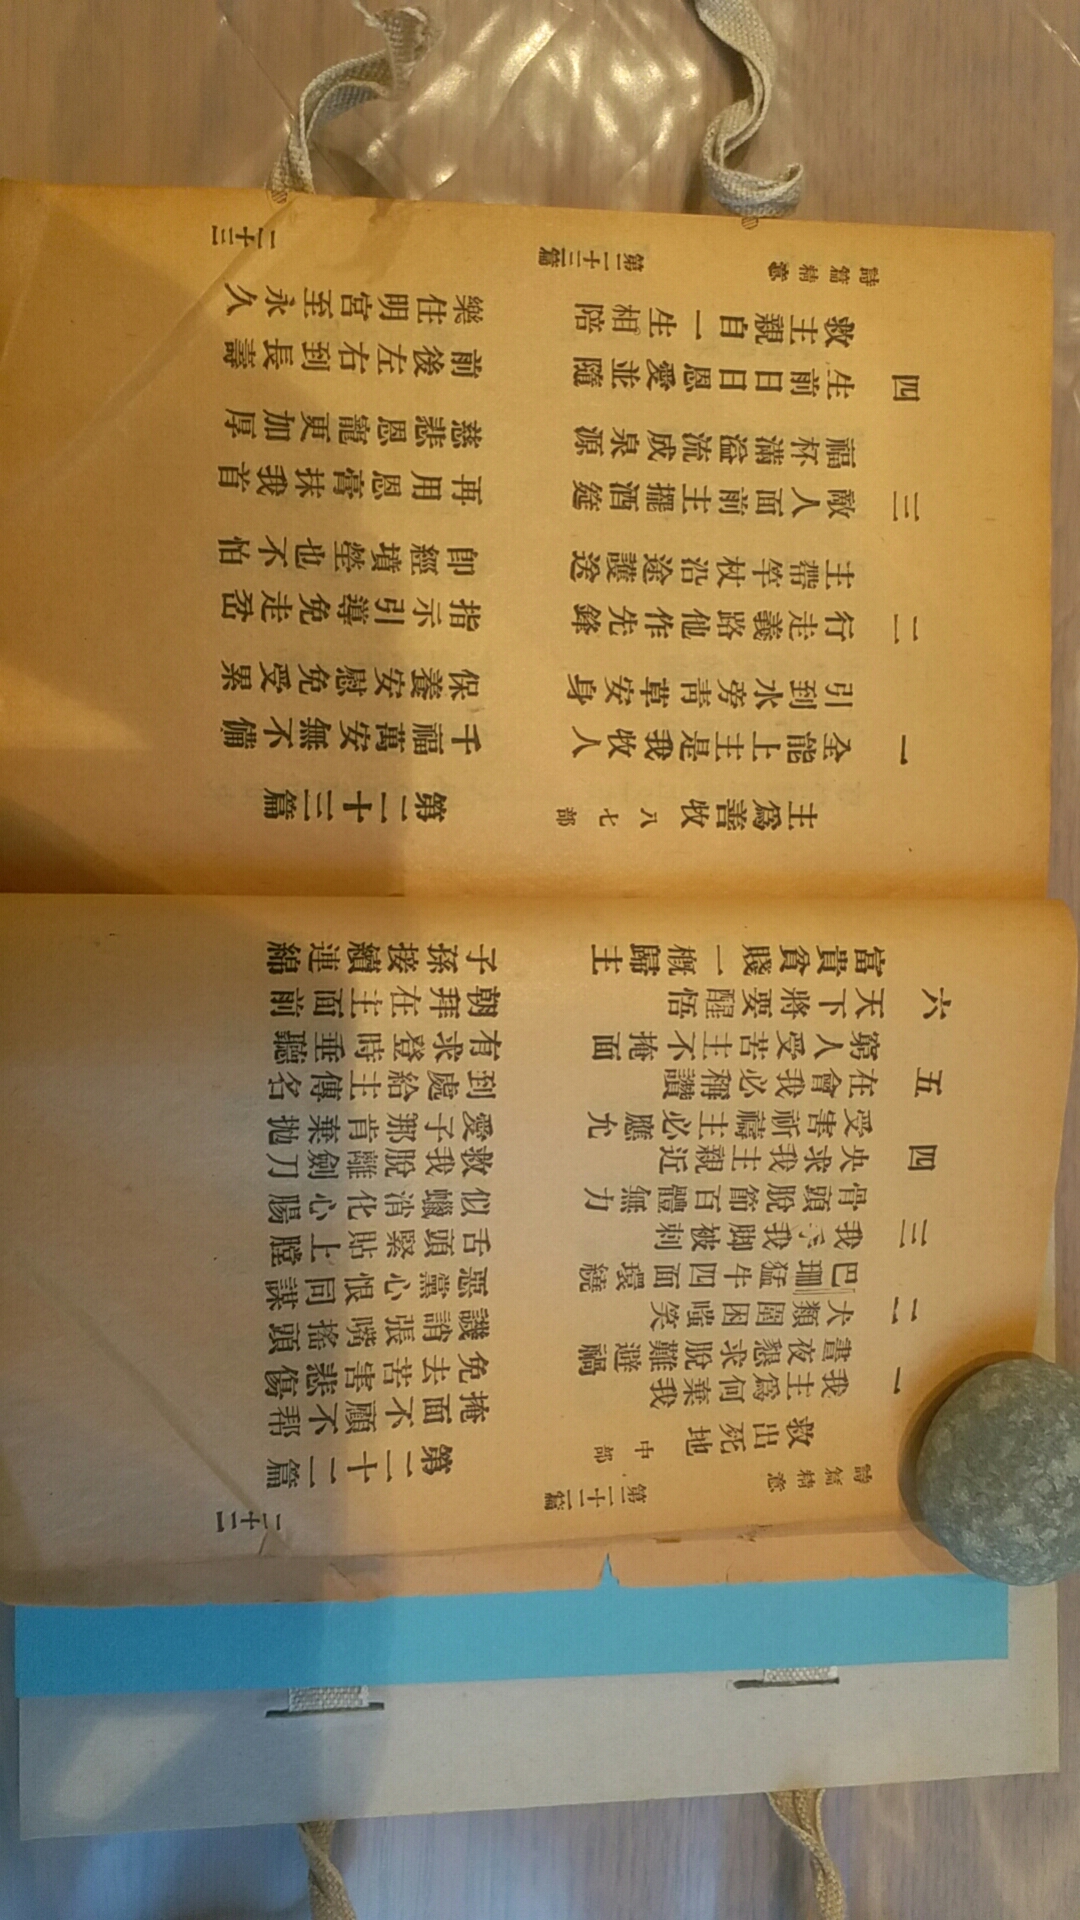 詩篇精意 第二十二篇 二十二
救出死地 中部 第二十二篇
一 我主為何棄我 掩面不顧不帮
晝夜懇求脫難避禍 免去苦害悲傷
二 犬類圍困嗤笑 譏誚張嘴搖頭
巴珊猛牛四面環繞 惡黨心恨同謀
三 我手我脚被刺 舌頭緊貼上膛
骨頭脫節百體無力 似蠟消化心腸
四 央求我主親近 救我脫離劍刀
受害祈禱主必應允 愛子那肯棄拋
五 在會我必稱讚 到處給主傳名
窮人受苦主不掩面 有求登時垂聽
六 天下將要醒悟 朝拜在主面前
富貴貧賤一概歸主 子孫接續連綿
主為善牧 八七部 第二十三篇
一 全能上主是我牧人 千福萬安無不備
引到水旁靑草安身 保養安慰免受累
二 行走義路他作先鋒 指示引導免走岔
主帶竿杖沿途護送 卽經墳塋也不怕
三 敵人面前主擺酒筵 再用恩膏抹我首
福杯滿溢流成泉源 慈悲恩寵更加厚
四 生前日日恩愛並隨 前後左右到長壽
救主親自一生相陪 樂住明宮至永久
詩篇精意 第二十三篇 二十三